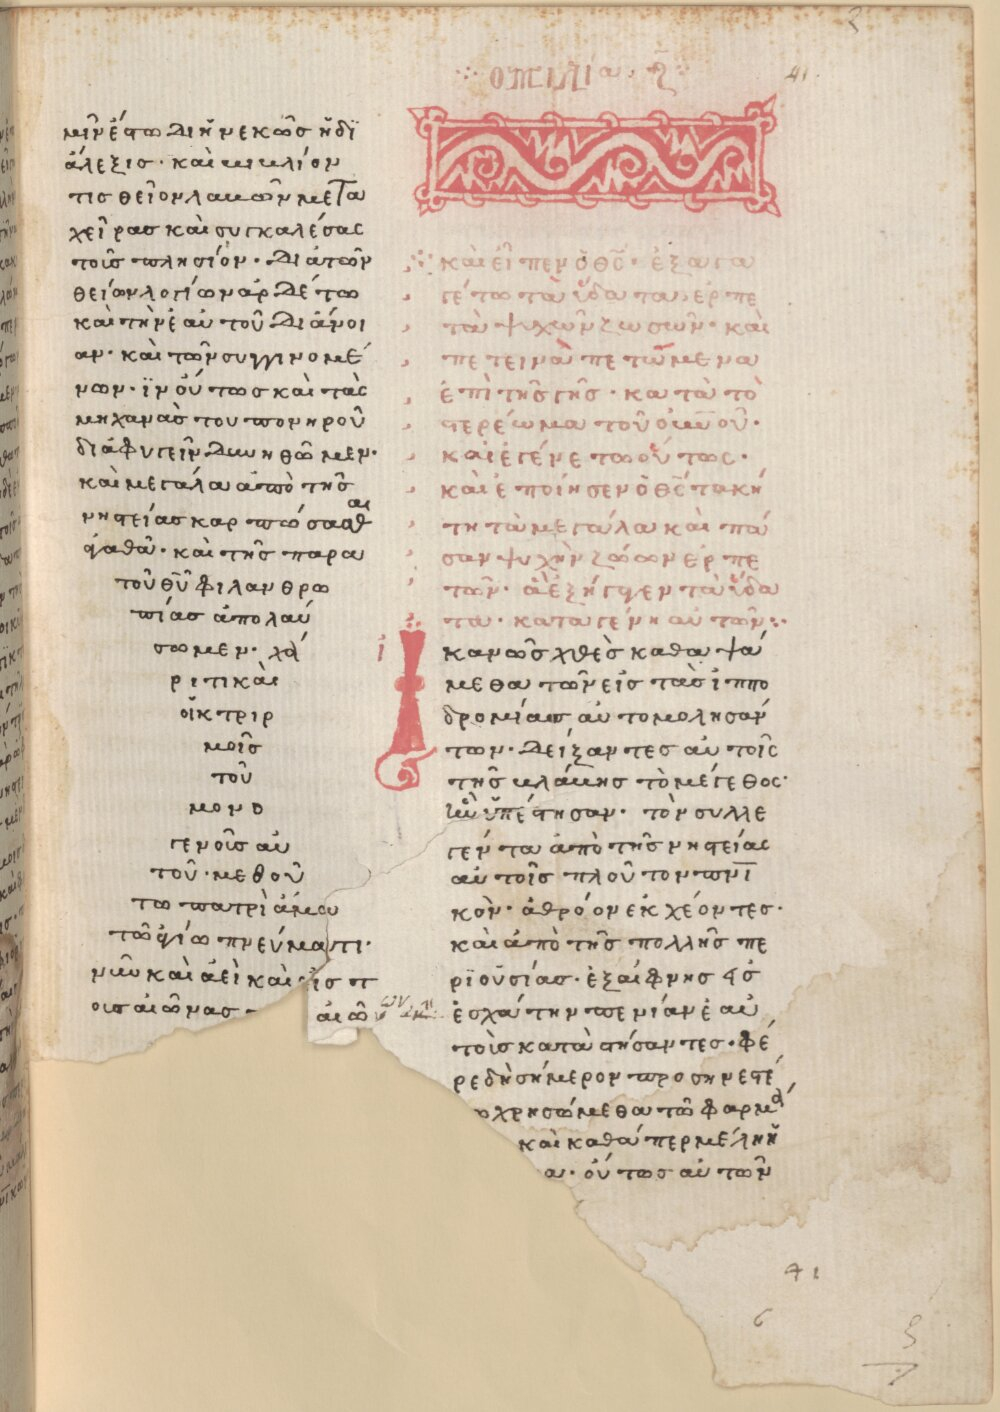 μῖν ἔστω διηνεκῶς ἡ δϊ
άλεξις· καὶ κοιλίον
τις θεῖον λαβὼν μετα
χεῖρας καὶ συγκαλέσας
τοῖς πλησίον· διὰ τῶν
θείων λογίων ἀρδέτω
καὶ τὴν ἑαυτοῦ διάνοι
αν· καὶ τῶν συγγινομέ
νων· ἵν οὕτως καὶ τὰς
μηχανὰς του πονηροῦ
διαφυγεῖν δυνηθῶμεν·
καὶ μεγάλα ἀπὸ τῆς
νηστείας καρπώσασθαι
ἀγαθὰ· καὶ τῆς παρα
τοῦ θῦ φιλανθρω
πίας ἀπολαύ
σωμεν· χά
ριτι καὶ
οἰκτιρ
μοῖς
τοῦ
μονο
γενοῦς αὐ
τοῦ· μεθ οὗ
τω πατρὶ ἅμα
τῶ ἁγίω πνεύματι·
νῦν καὶ ἀεὶ καὶ εἰς τ
ους αἰῶνας αἰώνων ἀμήν
ομιλία· η
41
καὶ εἶπεν ὁ θς· ἐξαγα
γέτω τὰ ὕδατα, ἑρπε
τὰ ψυχῶν ζωσῶν· καὶ
πετεινὰ πετώμενα
ἐπὶ τῆς γῆς· κατὰ τὸ
στερέωμα τοῦ οὐνοῦ·
καὶ ἐγένετω οὕτως·
καὶ ἐποίησεν ὁ θς τα κή
τη τὰ μεγάλα καὶ πά
σαν ψυχὴν ζώων ἑρπε
τῶν· ἃ ἐξήγαγεν τὰ ὕδα
τα· κατα γένη αὐτῶν:·
ἱκανῶς χθὲς καθαψά
μεθα τῶν εἰς τὰς ἱππο
δρομίας αὐτομολησάν
των· δείξαντες αὐτοῖς
τῆς βλάβης τὸ μέγεθος·
ἣν ὑπέστησαν· τὸν συλλε
γέντα ἀπὸ τῆς νηστείας
αὐτοῖς πλοῦτον πνι
κὸν· ἀθρόον ἐκχέοντες·
καὶ ἀπὸ τῆς πολλῆς πε
ριουσίας· ἐξαίφνης εἰς
ἐσχάτην πενίαν ἑαυ
τοὺς καταστήσαντες· φέ
ρε δὴ σήμερον προσηνεστέ
ω χρησώμεθα τῶ φαρμά
καὶ καθάπερ μέλη ἢ
α· οὕτως αὐτῶν
41
6